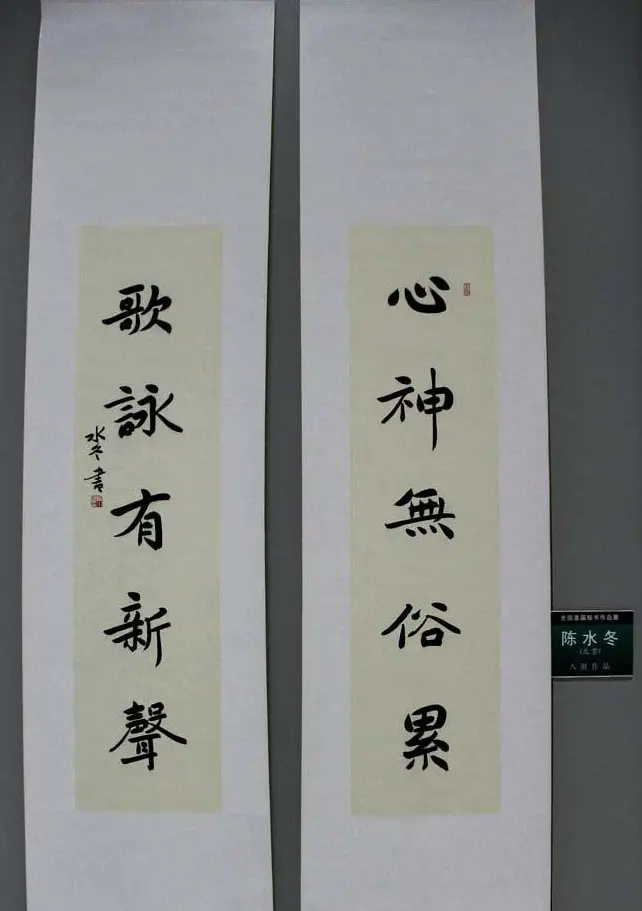 心神無俗累
歌詠有新聲
水冬書
全国首届楹书作品展
陈水冬
(北京)
入展作品